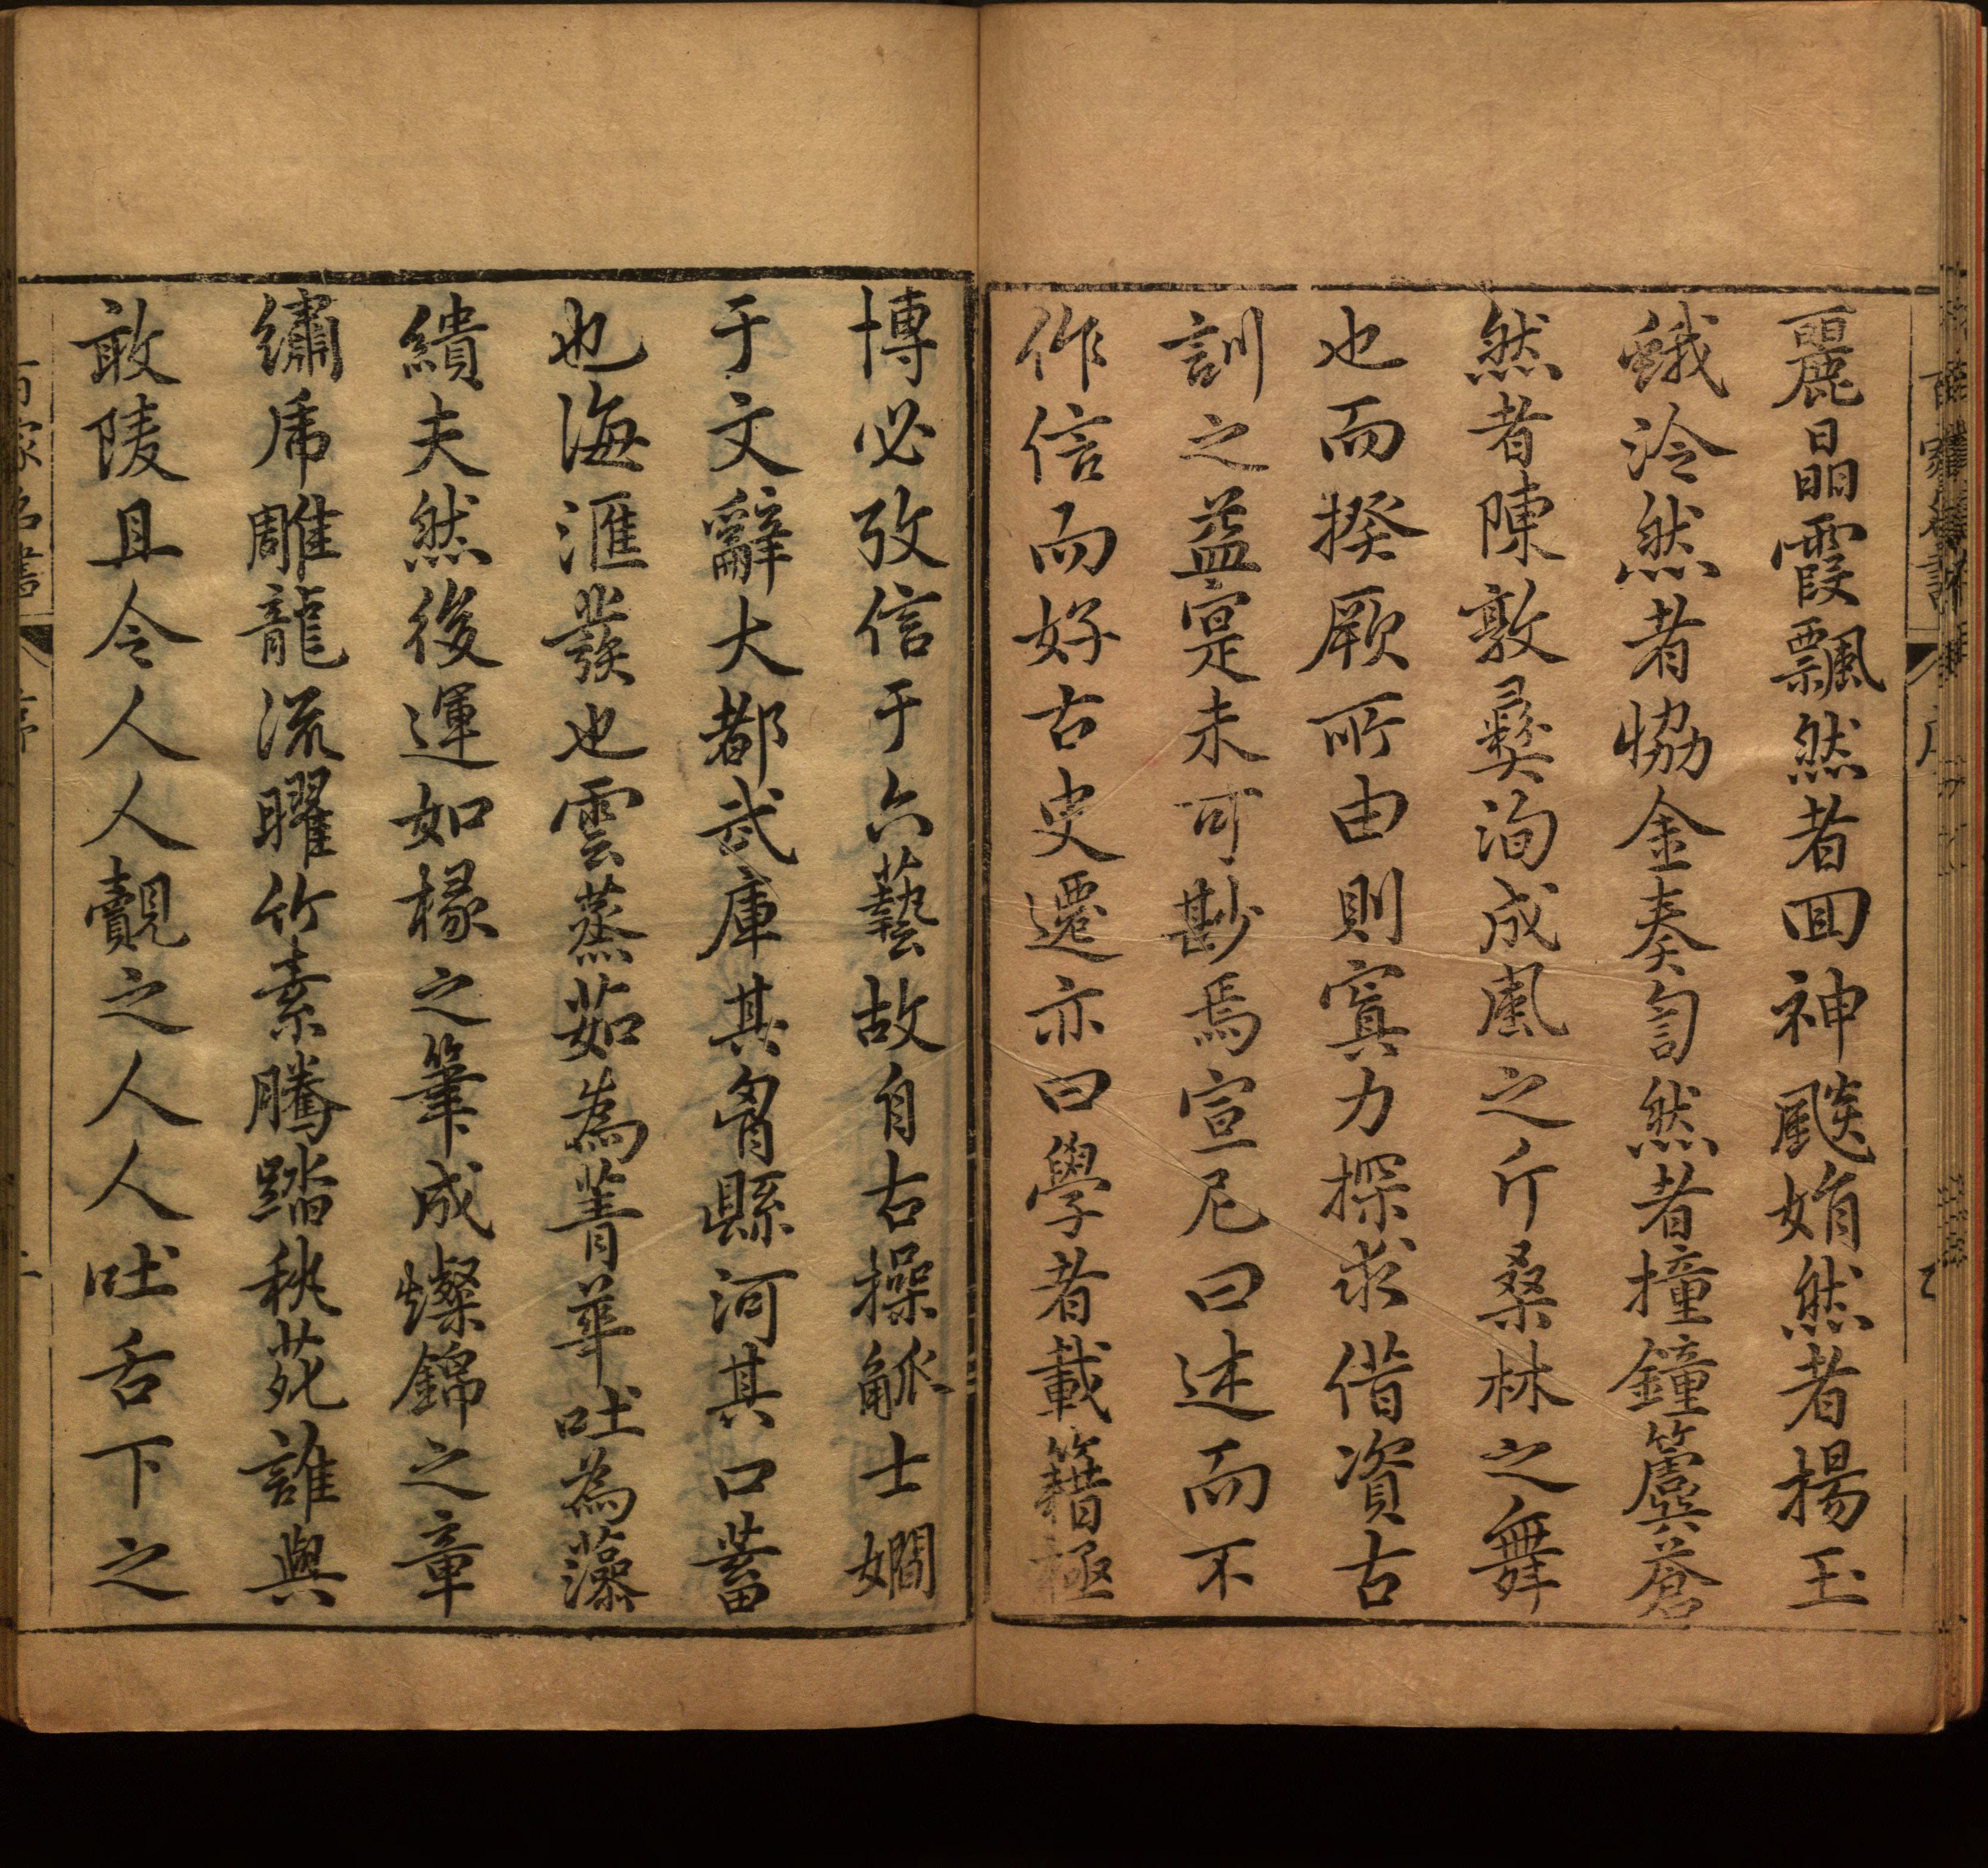 麗晶霞飄然者回神颷娋然者揚玉
蛾泠然者恊金奏訇然者撞鐘簴蒼
然者陳敦彝洵成風之斤桑林之舞
也而揆厥所由則寘力探求借資古
訓之益寔未可尠焉宣尼曰述而不
作信而好古史遷亦曰學者載籍極
博必攷信于六藝故自古操觚士嫺
于文辭大都武庫其胷縣河其口蓄
也海滙發也雲蒸茹為菁華吐為藻
繢夫然後運如椽之筆成燦錦之章
繡虎雕龍流曜竹素騰踏秇苑誰與
敢陵且令人人覿之人人吐舌下之
百家名書
序